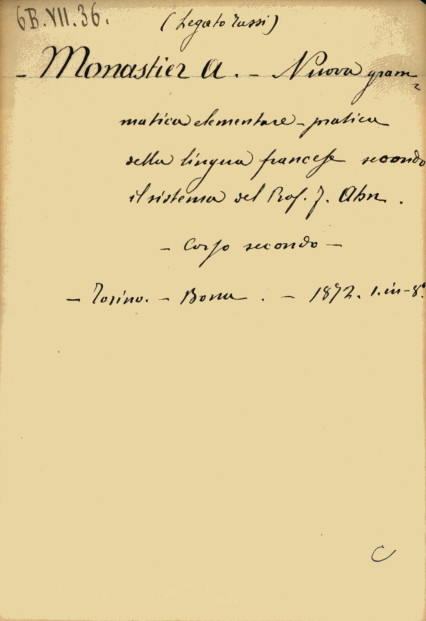 6B.VII.36.
(Legato Tassi)
- Monastier A. - Nuova gram-
matica elementare-pratica
della lingua francese secondo
il sistema del Prof. J. Ahn.
- Corso secondo -
- Torino. - Bona. - 1872. 1. in-8°.
C